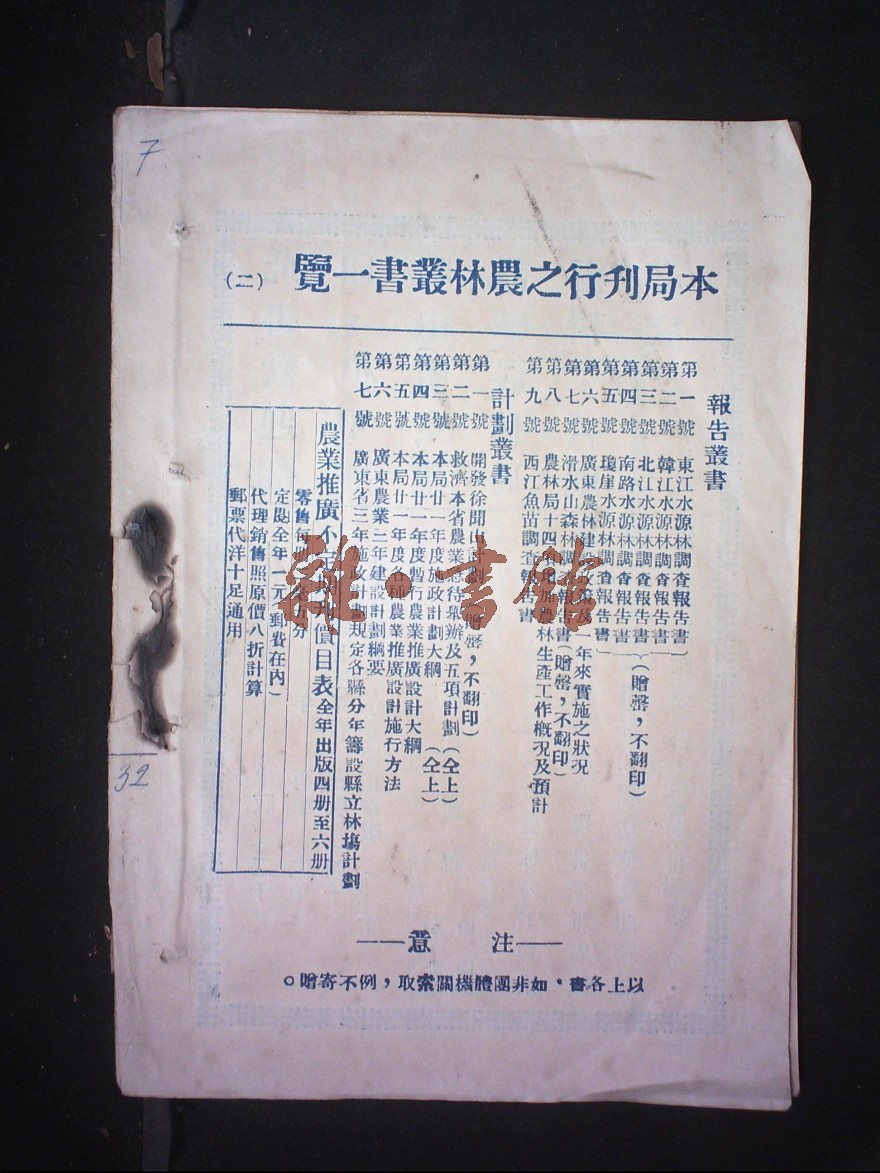 7
本局刋行之農林叢書一覽 (二)
報告叢書
第一號 東江水源林調查報告書
第二號 韓江水源林調查報告書
第三號 北江水源林調查報告書
第四號 南路水源林調查報告書
第五號 瓊崖水源林調查報告書
(贈罄,不翻印)
第六號 廣東農林建設政策及一年來實施之狀况
第七號 滑水山森林調查報告書(贈罄,不翻印)
第八號 農林局十四 農林生產工作概况及預計
第九號 西江魚苗調查報告書
計劃叢書
第一號 開發徐聞 計劃 (贈罄,不翻印)
第二號 救濟本省農業急待舉辦及五項計劃(仝上)
第三號 本局廿一年度施政計劃大綱
第四號 本局廿一年度暫行農業推廣設計大綱(仝上)
第五號 本局廿一年度各種農業推廣設計施行方法
第六號 廣東農業三年建設計劃綱要
第七號 廣東省三年施政計劃規定各縣分年籌設縣立林塲計劃
農業推廣不定期刋價目表全年出版四册至六册
零售每册 五分
定閱全年一元(郵費在內)
代理銷售照原價八折計算
郵票代洋十足通用
32
——注 意——
以上各書,如非團體機關索取,例不寄贈。
雜·書館